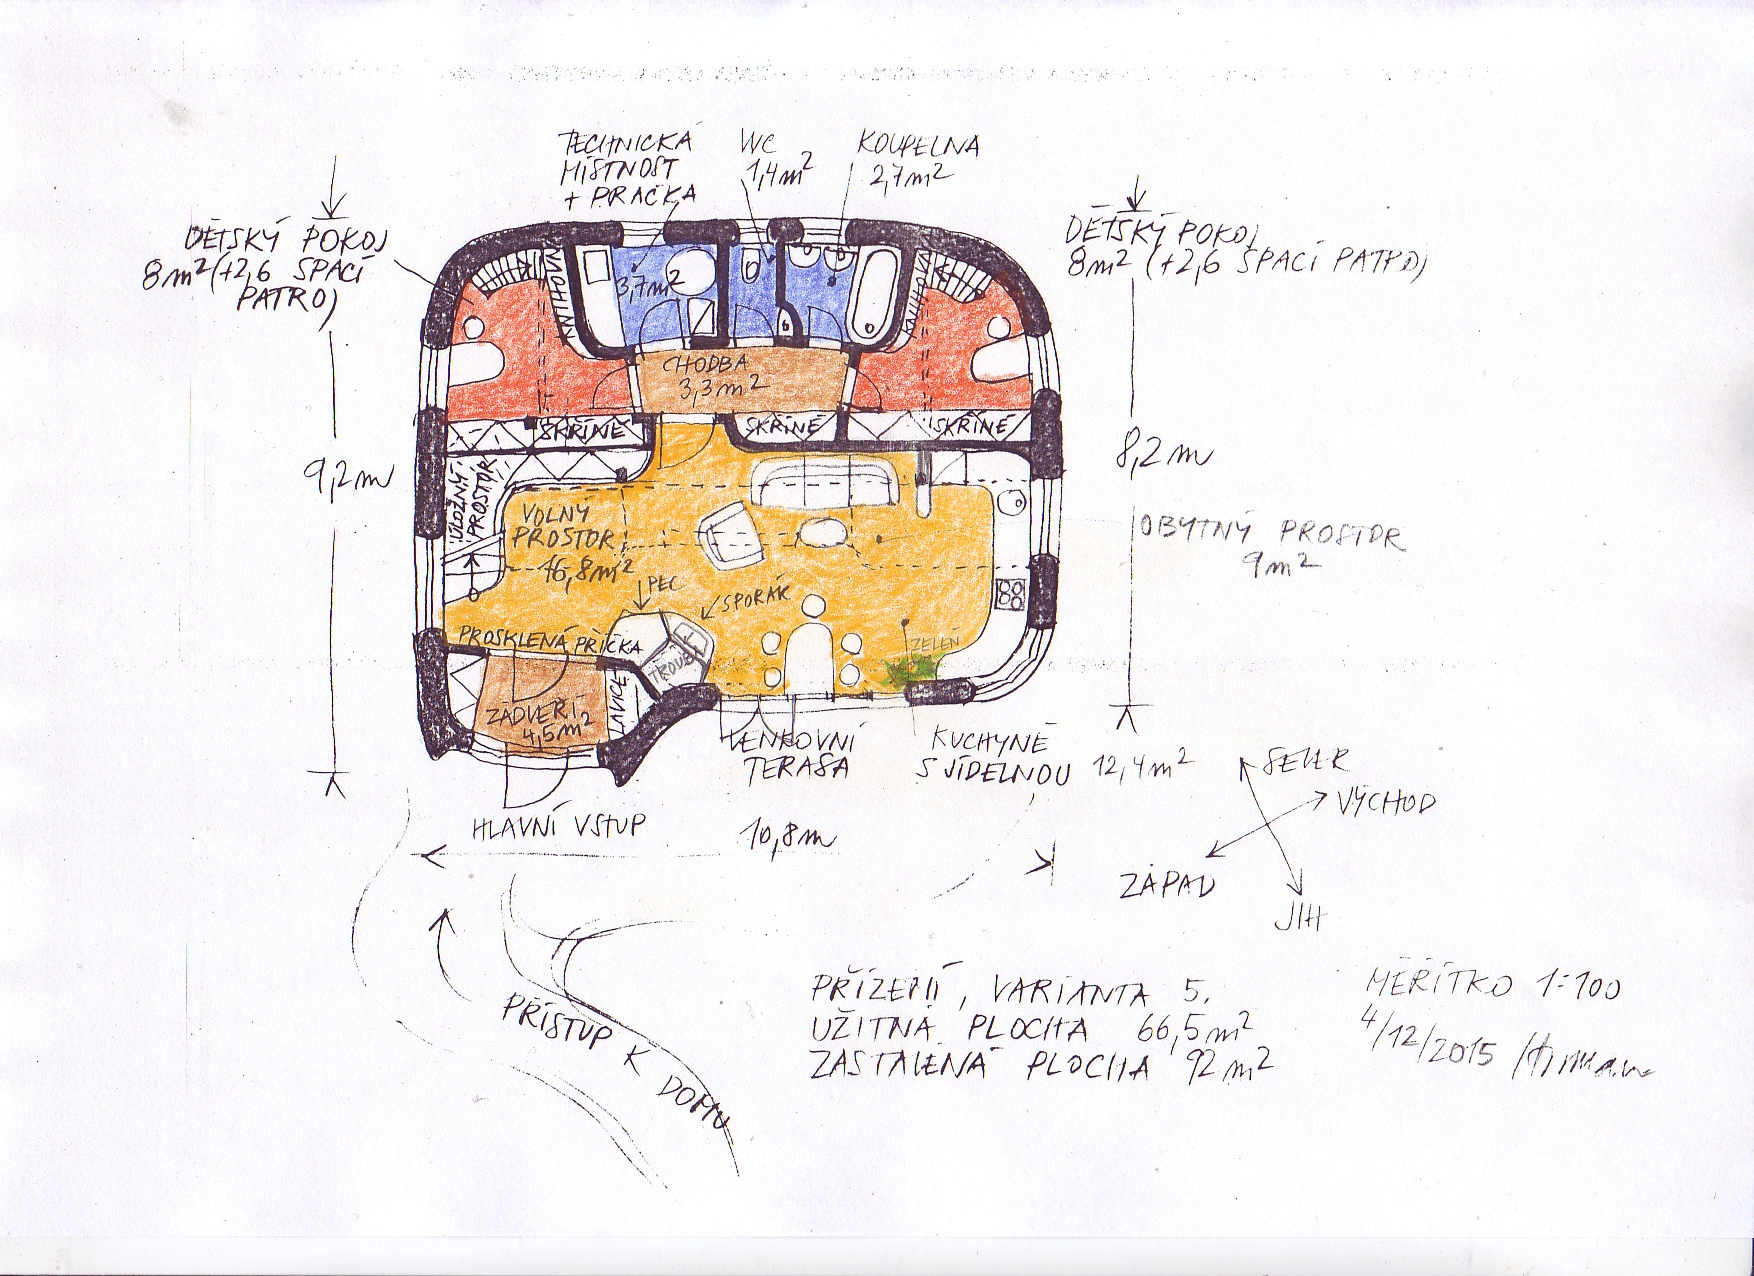 TECHNICKÁ
MÍSTNOST
+ PRAČKA
WC
1,4m²
KOUPELNA
2,7m²
DĚTSKÝ POKOJ
8m² (+2,6 SPACÍ
PATRO)
DĚTSKÝ POKOJ
8m² (+2,6 SPACÍ PATRO)
3,7m²
KNIHOVNA
CHODBA
3,3m²
SKŘÍNĚ
SKŘÍNĚ
SKŘÍNĚ
9,2m
8,2m
ÚLOŽNÝ
PROSTOR
VOLNÝ
PROSTOR
16,8m²
OBYTNÝ PROSTOR
9m²
PEC
SPORÁK
TROUBA
PROSKLENÁ PŘÍČKA
ZELEŇ
LAVICE
ZÁDVEŘÍ
4,5m²
VENKOVNÍ
TERASA
KUCHYNĚ
S JÍDELNOU 12,4m²
HLAVNÍ VSTUP
10,8m
SEVER
VÝCHOD
ZÁPAD
JIH
PŘÍSTUP K DOMU
PŘÍZEMÍ, VARIANTA 5.
UŽITNÁ PLOCHA 66,5m²
ZASTAVĚNÁ PLOCHA 92m²
MĚŘÍTKO 1:100
4/12/2015